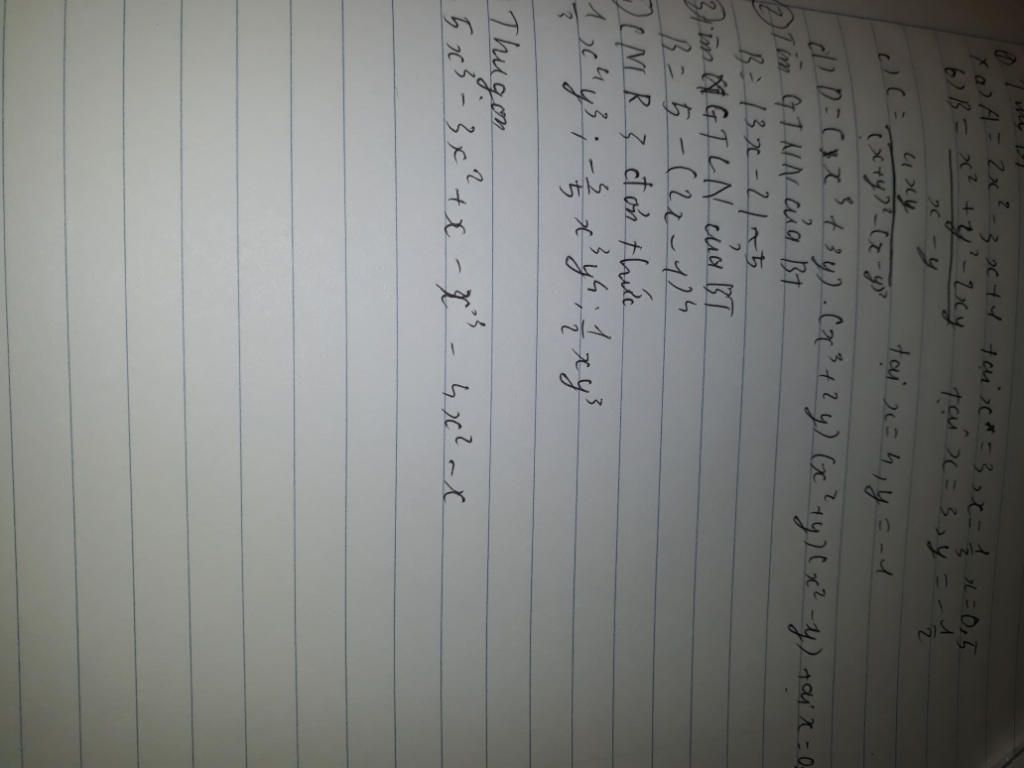 x a) A = 2x² - 3x + 1 tại x = 3, x = 1/3 x = 0,5
b) B = (x² + y² - 2xy)/(x - y) tại x = 3, y = -1/2
c) C = 4xy/((x+y)² - (x-y)²) tại x = 4, y = -1
d) D = (x³ + 3y).(x³ + 2y)(x² + y)(x² - y) tại x = 0
② Tìm GTNN của BT
B = |3x - 2| - 5
③ Tìm GTLN của BT
B = 5 - (2x - 1)⁴
) CMR 3 đơn thức
1/3 x⁴y³ ; -3/5 x³y⁴ ; 1/2 xy³
Thu gọn
5x³ - 3x² + x - x³ - 4x² - x